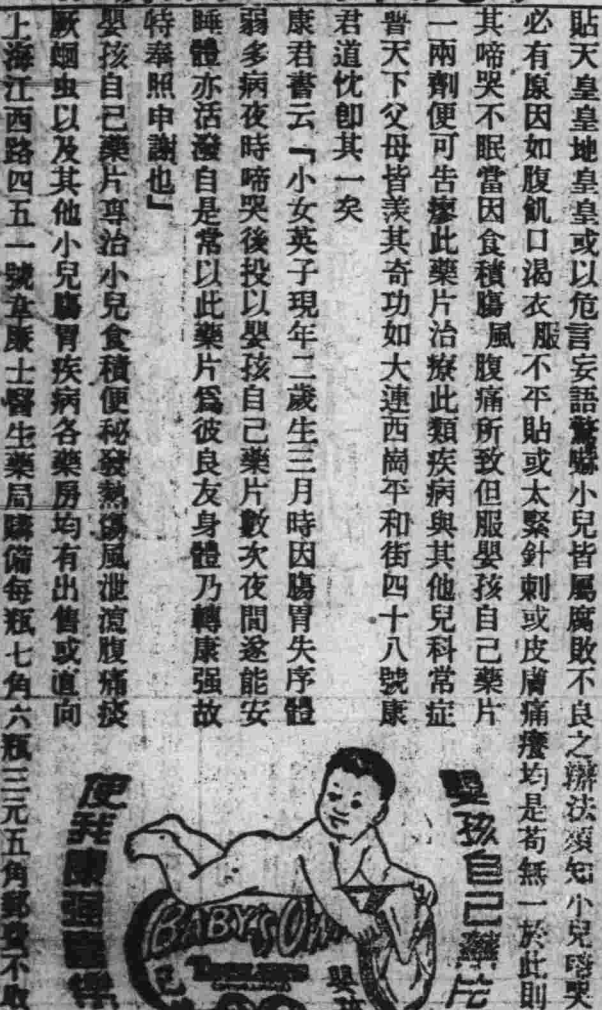 貼天皇皇地皇皇或以危言妄語驚嚇小兒皆屬腐敗不良之辦法須知小兒啼哭
必有原因如腹飢口渴衣服不平貼或太緊針刺或皮膚痛癢均是苟無一於此則
其啼哭不眠當因食積腸風腹痛所致但服嬰孩自己藥片
一兩劑便可告瘳此藥片治療此類疾病與其他兒科常症
普天下父母皆羨其奇功如大連西崗平和街四十八號康
君道忱卽其一矣
康君書云「小女英子現年二歲生三月時因腸胃失序體
弱多病夜時啼哭後投以嬰孩自己藥片數次夜間遂能安
睡體亦活潑自是常以此藥片爲彼良友身體乃轉康强故
特奉照申謝也」
嬰孩自己藥片專治小兒食積便秘發熱傷風泄瀉腹痛痰
厥蛔虫以及其他小兒腸胃疾病各藥房均有出售或直向
上海江西路四五一號韋廉士醫生藥局購備每瓶七角六瓶三元五角郵費不取
嬰孩自己藥片
使我康强喜樂
BABY'S OWN
TABLETS
嬰孩
己